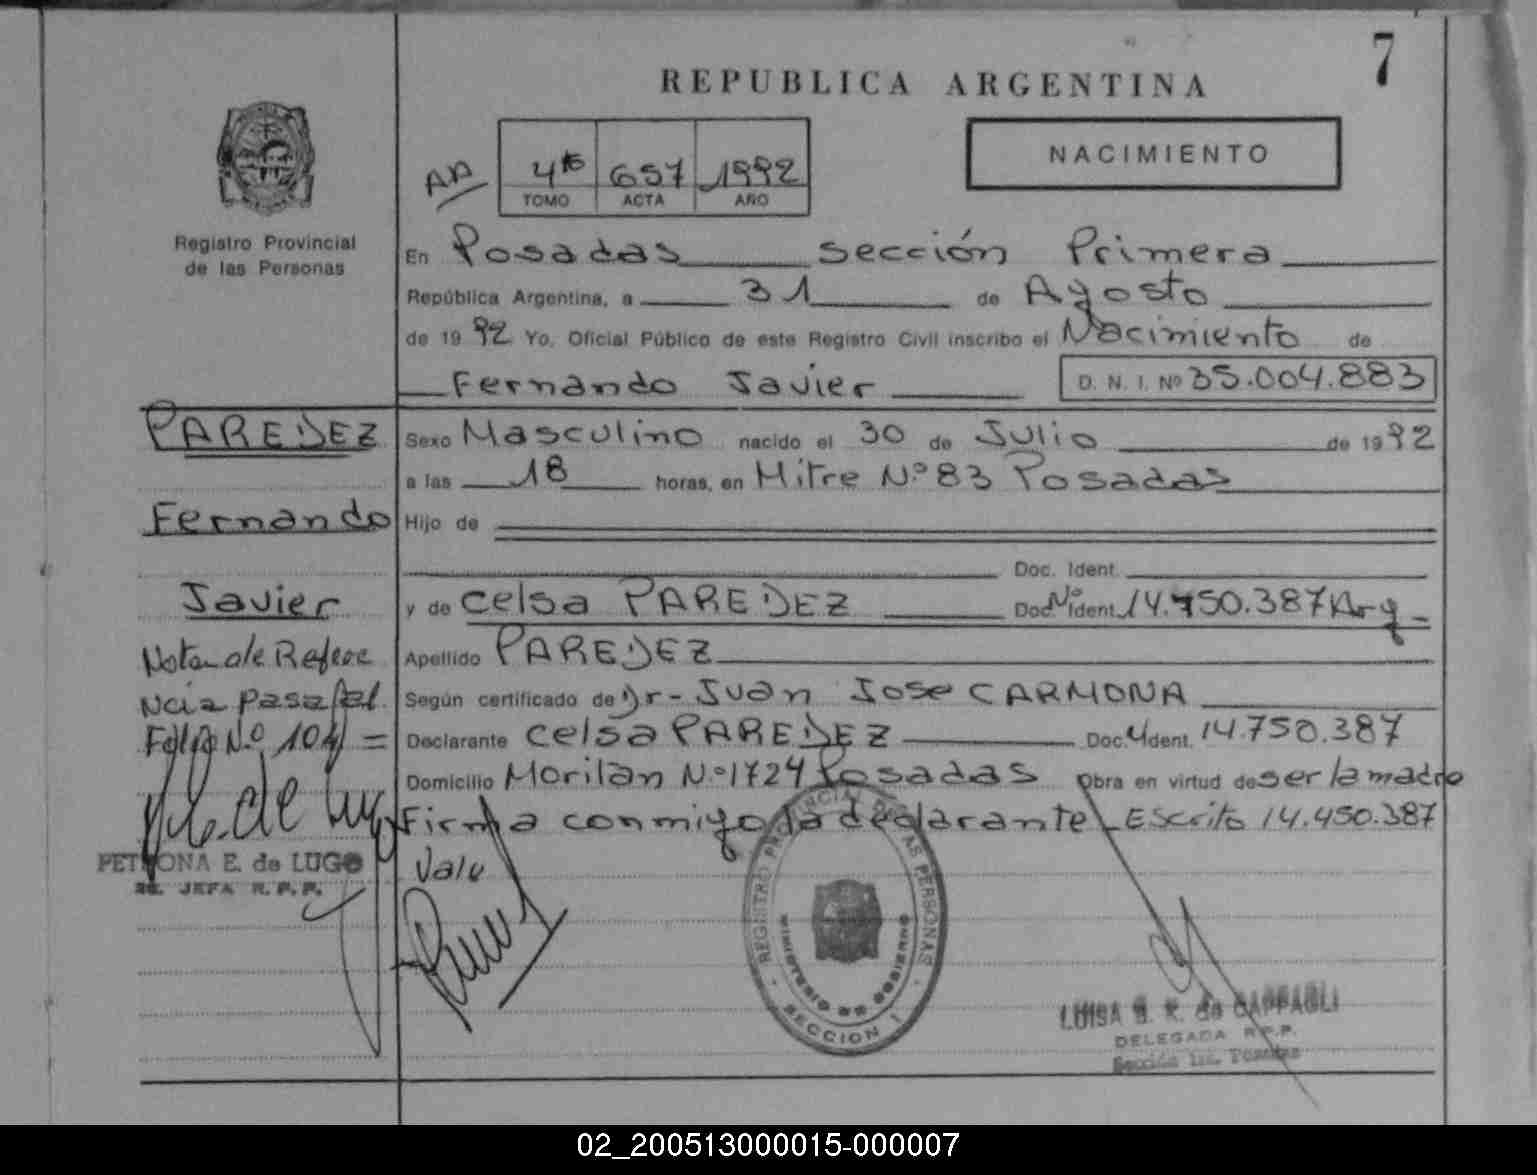 7
REPUBLICA ARGENTINA
NACIMIENTO
4to 657 1992
TOMO ACTA AÑO
Registro Provincial
de las Personas
En Posadas sección Primera
República Argentina, a 31 de Agosto
de 1992 Yo, Oficial Público de este Registro Civil inscribo el Nacimiento de
Fernando Javier D. N. I. Nº 35.004.883
PAREDEZ
Sexo Masculino nacido el 30 de Julio de 1992
a las 18 horas, en Mitre Nº 83 Posadas
Fernando
Hijo de
Doc. Ident.
Javier
y de Celsa PAREDEZ Doc. Nº Ident. 14.750.387 Arg
Nota de Refere
Apellido PAREDEZ
ncia pasa al
Según certificado de Dr- Juan Jose CARMONA
Folio Nº 104 =
Declarante Celsa PAREDEZ Doc. Ident. 14.750.387
Domicilio Nº 1724 Posadas Obra en virtud de ser la madre
Firma conmigo la declarante - Escrito 14.450.387
Vale
PETRONA E. de LUGO
JEFA R.P.P.
REGISTRO PROVINCIAL DE LAS PERSONAS
MINISTERIO DE GOBIERNO
SECCION 1
LUISA de CAPPAGLI
DELEGADA R.P.P.
Sección 1ra. Posadas
02_200513000015-000007